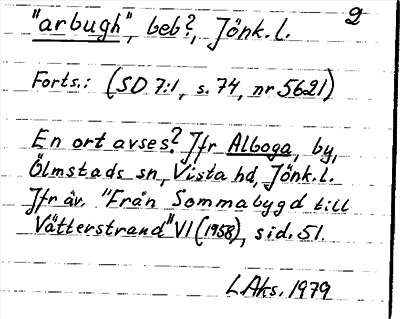 2
"arbugh", beb?, Jönk.l.
Forts.: (SD 7:1, s. 74, nr 5621)
En ort avses? Jfr Alboga, by,
Ölmstads sn, Vista hd, Jönk.l.
Jfr äv. "Från Sommabygd till
Vätterstrand" VI (1958), sid. 51.
LAks. 1979